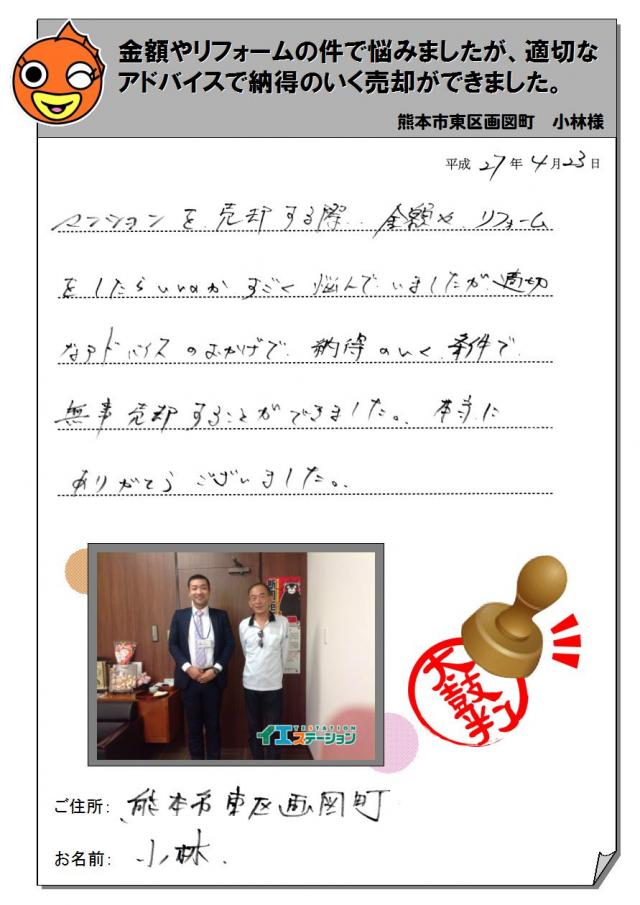 金額やリフォームの件で悩みましたが、適切な
アドバイスで納得のいく売却ができました。
熊本市東区画図町 小林様
平成 27 年 4 月 23 日
マンションを売却する際、金額や、リフォーム
をしたらいいのかすごく悩んでいましたが適切
なアドバイスのおかげで、納得のいく条件で
無事売却することができました。本当に
ありがとうございました。
YESTATION
イエステーション
太鼓判
ご住所: 熊本市東区画図町
お名前: 小林.